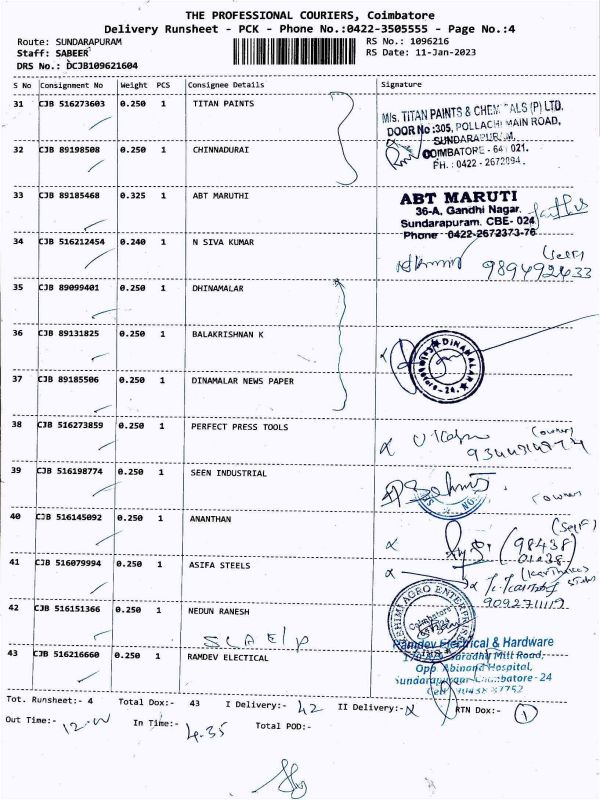 THE PROFESSIONAL COURIERS, Coimbatore
Delivery Runsheet - PCK - Phone No.:0422-3505555 - Page No.:4
Route: SUNDARAPURAM RS No.: 1096216
Staff: SABEER RS Date: 11-Jan-2023
DRS No.: DCJB109621604
S No Consignment No Weight PCS Consignee Details Signature
31 CJB 516273603 0.250 1 TITAN PAINTS
M/s. TITAN PAINTS & CHEM ALS (P) LTD.
DOOR No :305, POLLACHI MAIN ROAD,
SUNDARAPURAM,
COIMBATORE - 641 021.
PH. : 0422 - 2672094.
32 CJB 89198508 0.250 1 CHINNADURAI
33 CJB 89185468 0.325 1 ABT MARUTHI
ABT MARUTI
36-A, Gandhi Nagar,
Sundarapuram, CBE- 024
Phone 0422-2672373-76
34 CJB 516212454 0.240 1 N SIVA KUMAR
(Self)
9894992433
35 CJB 89099401 0.250 1 DHINAMALAR
36 CJB 89131825 0.250 1 BALAKRISHNAN K
DINAMALAR
37 CJB 89185506 0.250 1 DINAMALAR NEWS PAPER
38 CJB 516273859 0.250 1 PERFECT PRESS TOOLS
(owner)
39 CJB 516198774 0.250 1 SEEN INDUSTRIAL
owner
40 CJB 516145092 0.250 1 ANANTHAN
(Self)
(98438
01238
41 CJB 516079994 0.250 1 ASIFA STEELS
9092711119
42 CJB 516151366 0.250 1 NEDUN RANESH
AGRO ENTERPRISES
Coimbatore
43 CJB 516216660 0.250 1 RAMDEV ELECTICAL
Ramdev Electrical & Hardware
Mill Road,
Opp. Abinand Hospital,
Sundarapuram Coimbatore - 24
Tot. Runsheet:- 4 Total Dox:- 43 I Delivery:- 42 II Delivery:- RTN Dox:- 1
Out Time:- In Time:- 4.35 Total POD:-